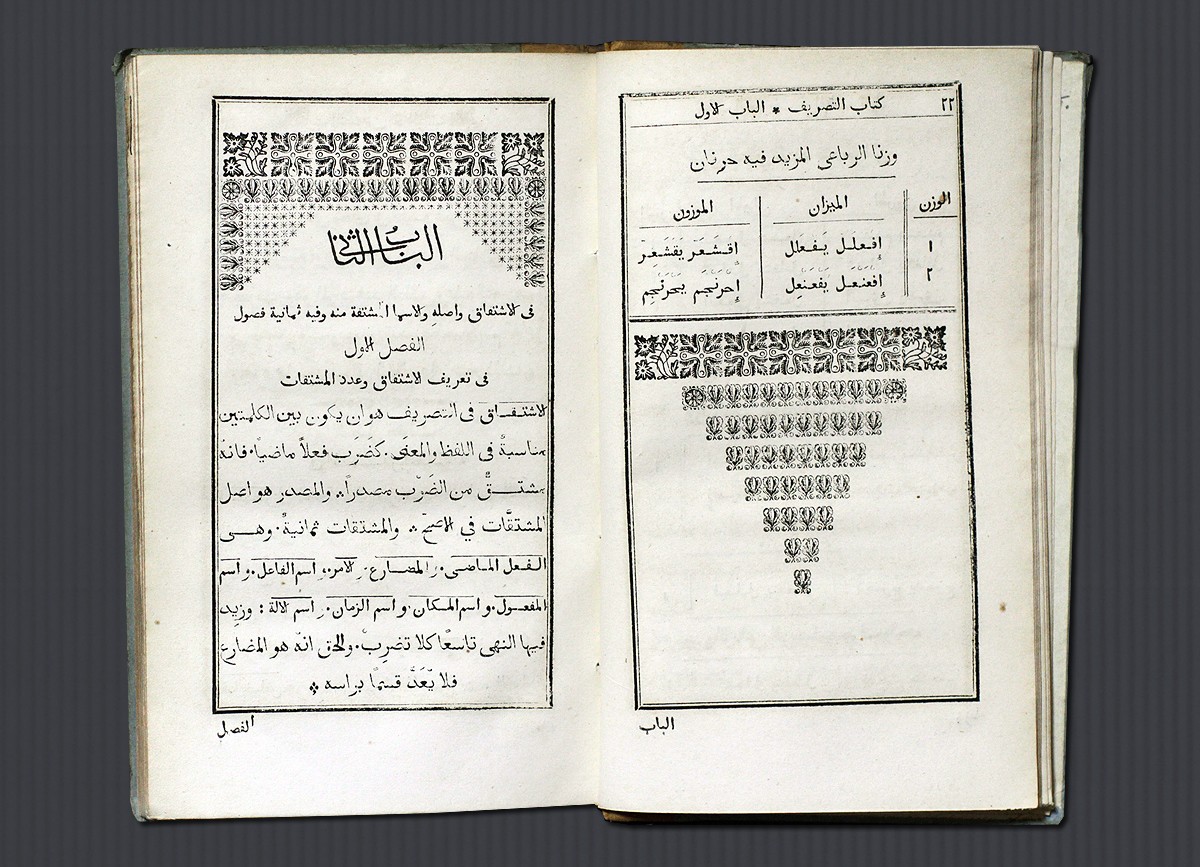 ٢٢ كتاب التصريف * الباب الاول
وزنا الرباعي المزيد فيه حرفان
الوزن الميزان الموزون
١ إفعلل يفعلل إقشعر يقشعر
٢ إفعنعل يفعنعل إحرنجم يحرنجم
الباب
الباب الثاني
في الاشتقاق واصلهِ والاسما المشتقة منه وفيه ثمانية فصول
الفصل الاول
في تعريف الاشتقاق وعدد المشتقات
الاشتقاق في التصريف هو ان يكون بين الكلمتين
مناسبةٌ في اللفظ والمعنَى. كضَرَب فعلاً ماضياً. فانهُ
مشتقٌّ من الضَرْب مصدراً: والمصدر هو اصل
المشتقَّات في الاصحّ: والمشتقات ثمانيةٌ. وهي
الفعل الماضي. والمضارع. والامر. واسم الفاعل. واسم
المفعول. واسم المكان. واسم الزمان. واسم الالة: وزيد
فيها النهي تاسعًا كلا تضرِبْ. والحق انَّه هو المضارع
فلا يُعَدُّ قسمًا براسه
الفصل